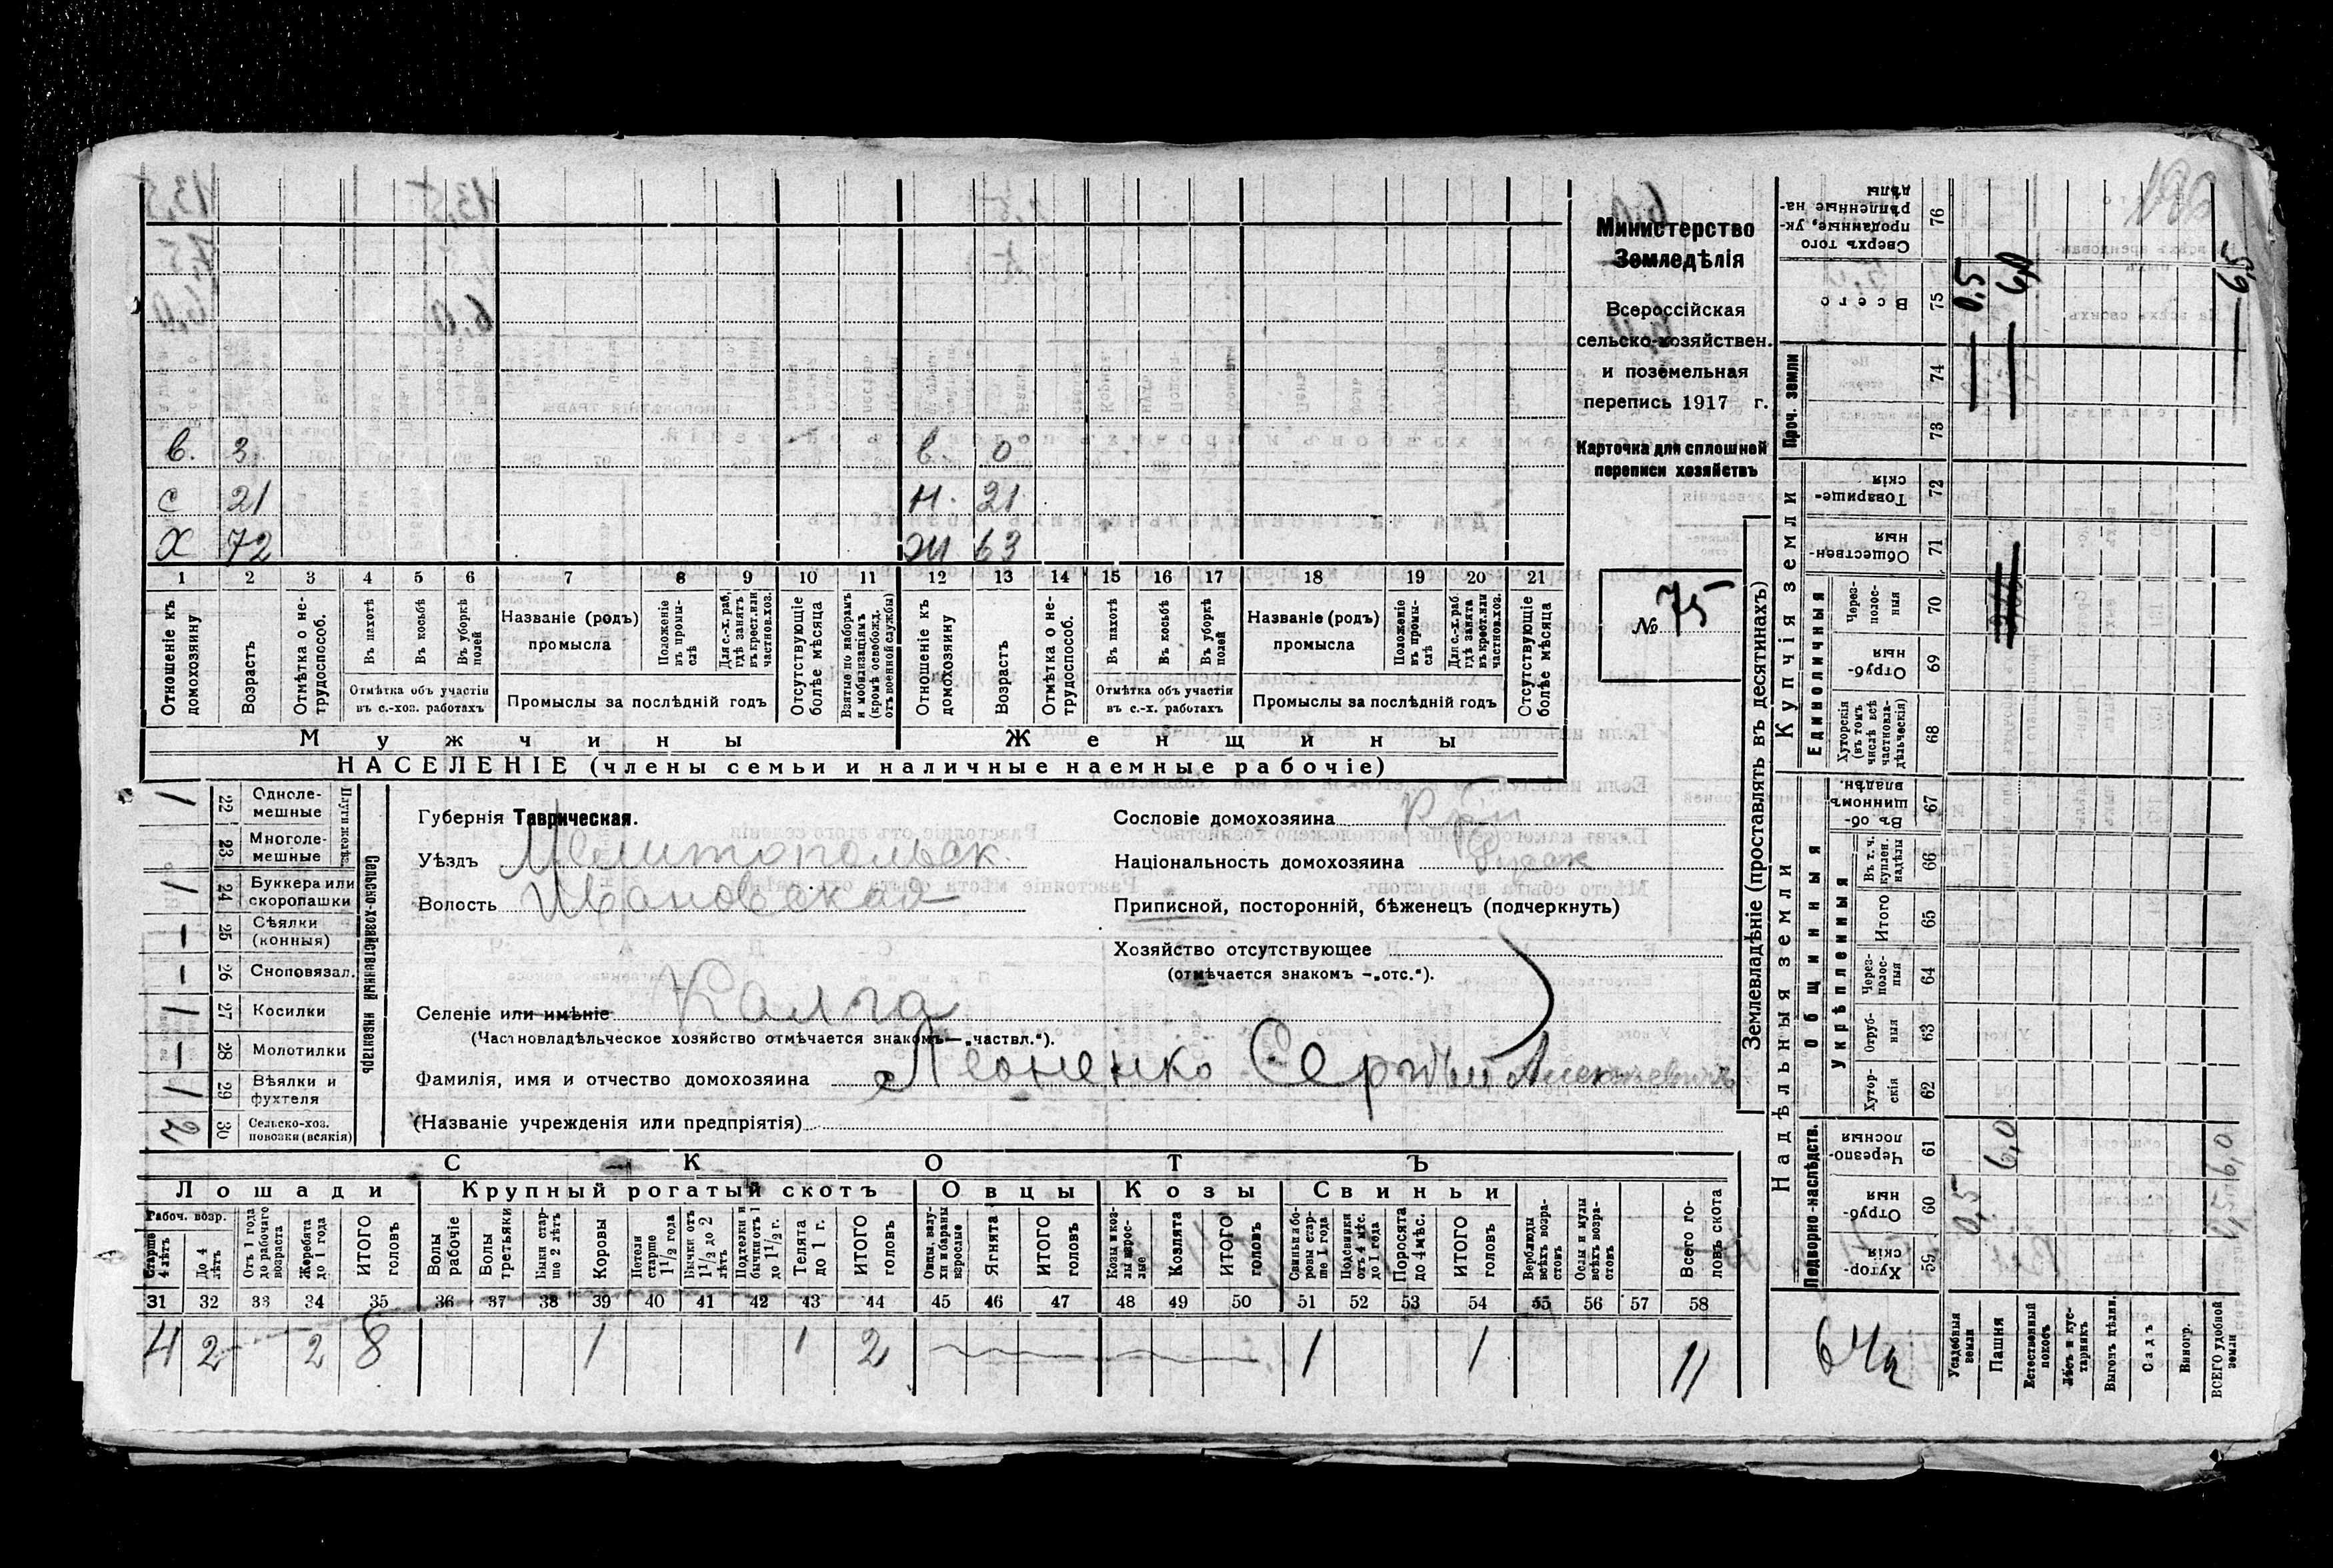 Министерство
Земледѣлія
Всероссійская
сельско-хозяйствен.
и поземельная
перепись 1917 г.
Карточка для сплошной
переписи хозяйствъ
№ 75
в. 3 в. 0
с 21 н. 21
х 72 ж 63
1 2 3 4 5 6 7 8 9 10 11 12 13 14 15 16 17 18 19 20 21
Отношеніе къ домохозяину
Возрастъ
Отмѣтка о не-трудоспособ.
Въ пахотѣ
Въ косьбѣ
Въ уборкѣ полей
Отмѣтка объ участіи въ с.-хоз. работахъ
Названіе (родъ) промысла
Положеніе въ промы-слѣ
Для с.-х. раб. гдѣ занятъ въ крест. или частнов. хоз.
Промыслы за послѣдній годъ
Отсутствующіе болѣе мѣсяца
Взятые по наборамъ и мобилизаціямъ (кромѣ освобожд. отъ военной службы)
Отношеніе къ домохозяину
Возрастъ
Отмѣтка о не-трудоспособ.
Въ пахотѣ
Въ косьбѣ
Въ уборкѣ полей
Отмѣтка объ участіи въ с.-х. работахъ
Названіе (родъ) промысла
Положеніе въ промы-слѣ
Для с.-х. раб. гдѣ занята въ крест. или частнов. хоз.
Промыслы за послѣдній годъ
Отсутствующіе болѣе мѣсяца
Мужчины Женщины
НАСЕЛЕНІЕ (члены семьи и наличные наемные рабочіе)
Сельско-хозяйственный инвентарь
Плуги желѣз.
1 22 Однолемешные
23 Многолемешные
1 24 Буккера или скоропашки
— 25 Сѣялки (конныя)
— 26 Сноповязал.
1 27 Косилки
— 28 Молотилки
1 29 Вѣялки и фухтеля
2 30 Сельско-хоз. повозки (всякія)
Губернія Таврическая.
Уѣздъ Мелитопольск.
Волость Ивановская
Селеніе или имѣніе Калга
(Частновладѣльческое хозяйство отмѣчается знакомъ—„частвл.“).
Фамилія, имя и отчество домохозяина Леоненко Сергѣй
(Названіе учрежденія или предпріятія)
Сословіе домохозяина
Національность домохозяина
Приписной, посторонній, бѣженецъ (подчеркнуть)
Хозяйство отсутствующее
(отмѣчается знакомъ —„отс.“).
СКОТЪ
Лошади Крупный рогатый скотъ Овцы Козы Свиньи
Рабоч. возр.
Старше 4 лѣтъ
До 4 лѣтъ
Отъ 1 года до рабочаго возраста
Жеребята до 1 года
ИТОГО головъ
Волы рабочіе
Волы третьяки
Быки старше 2 лѣтъ
Коровы
Нетели старше 1½ года
Бычки отъ 1½ до 2 лѣтъ
Подтелки и бычки отъ 1 до 1½ г.
Телята до 1 г.
ИТОГО головъ
Овцы, валухи и бараны взрослые
Ягнята
ИТОГО головъ
Козы и козлы взрослые
Козлята
ИТОГО головъ
Свиньи и боровы старше 1 года
Подсвинки отъ 4 мѣс. до 1 года
Поросята до 4 мѣс.
ИТОГО головъ
Верблюды всѣхъ возрастовъ
Ослы и мулы всѣхъ возрастовъ
Всего головъ скота
31 32 33 34 35 36 37 38 39 40 41 42 43 44 45 46 47 48 49 50 51 52 53 54 55 56 57 58
4 2 2 8 1 1 2 1 1 11
Землевладѣніе (проставлять въ десятинахъ)
Надѣльныя земли
Купчія земли
Проч. земли
Подворно-наслѣдств.
Общинныя
Укрѣпленныя
Единоличныя
Сверхъ того проданные, укрѣпленные надѣлы 76
Всего 75 0,5 6,0 6,5
74
73
Товарищескія 72
Общественныя 71
Черезполосныя 70
Отрубныя 69
Хуторскія (въ томъ числѣ всѣ частновладѣльческія) 68
Въ общинномъ владѣн. 67
Въ т. ч. куплен. надѣлы 66
Итого 65
Черезполосныя 64
Отрубныя 63
Хуторскія 62
Черезполосныя 61 6,0 6,0
Отрубныя 60 0,5
Хуторскія 59
Усадебныя земли
Пашня
Естественный покосъ
Лѣсъ и кустарникъ
Выгонъ цѣлин.
Садъ
Виногр.
ВСЕГО удобной земли